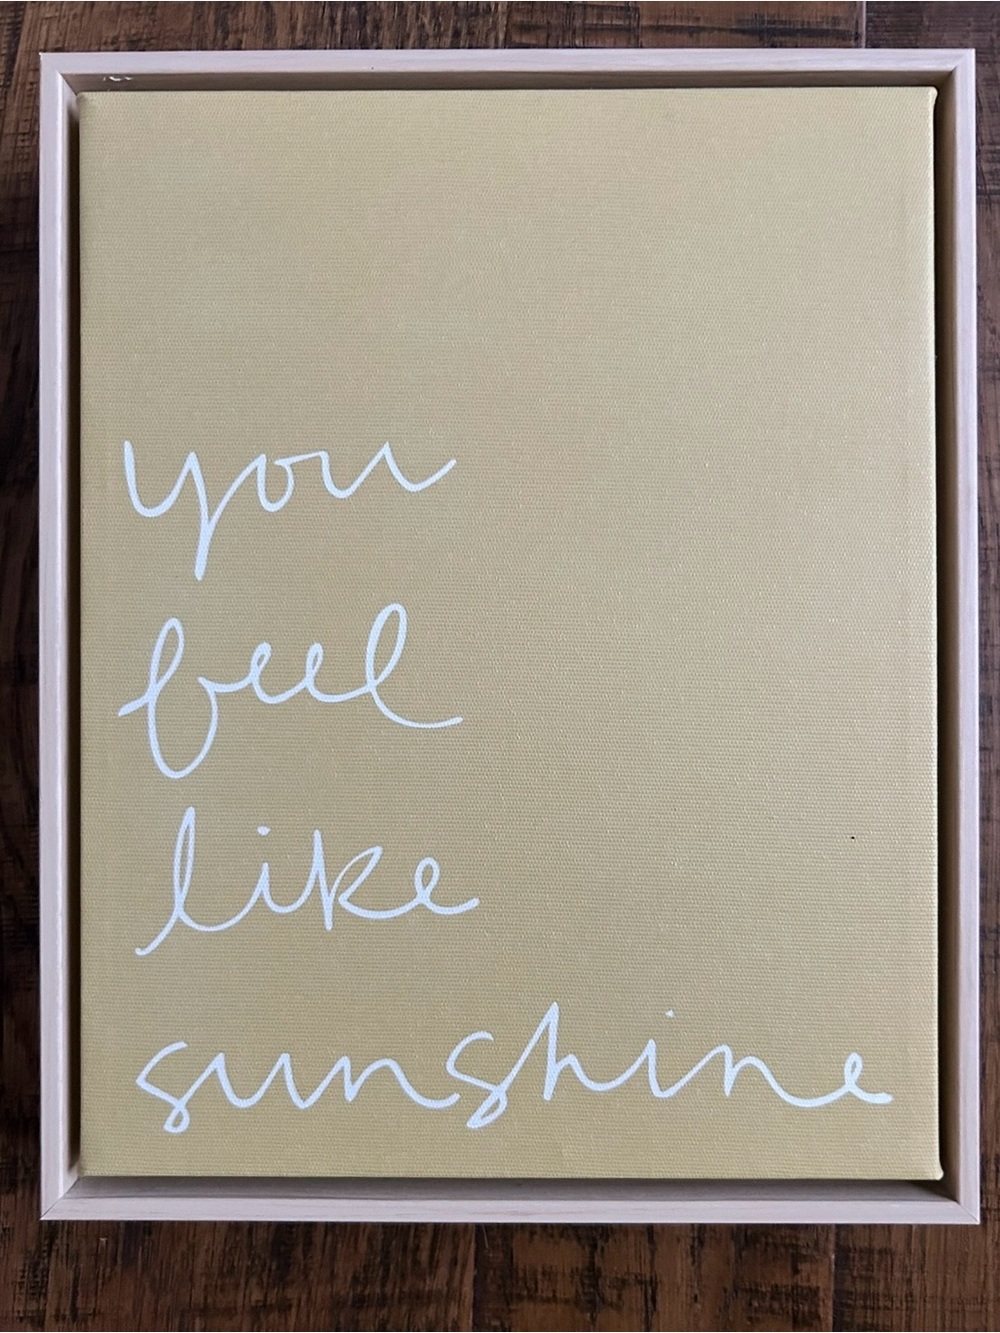 you
feel
like
sunshine